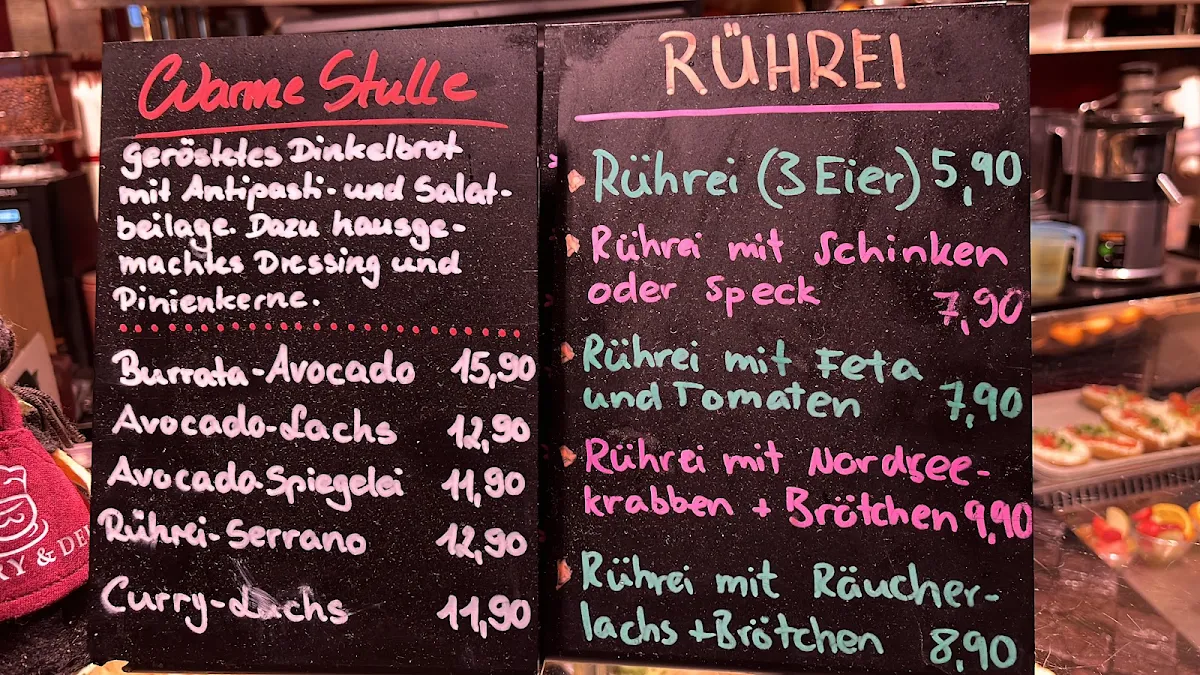 Warme Stulle
geröstetes Dinkelbrot
mit Antipasti- und Salat-
beilage. Dazu hausge-
machtes Dressing und
Pinienkerne.
Burrata-Avocado 15,90
Avocado-Lachs 12,90
Avocado Spiegelei 11,90
Rührei-Serrano 12,90
Curry-Lachs 11,90
RÜHREI
Rührei (3 Eier) 5,90
Rührei mit Schinken
oder Speck 7,90
Rührei mit Feta
und Tomaten 7,90
Rührei mit Nordsee-
krabben + Brötchen 9,90
Rührei mit Räucher-
lachs + Brötchen 8,90